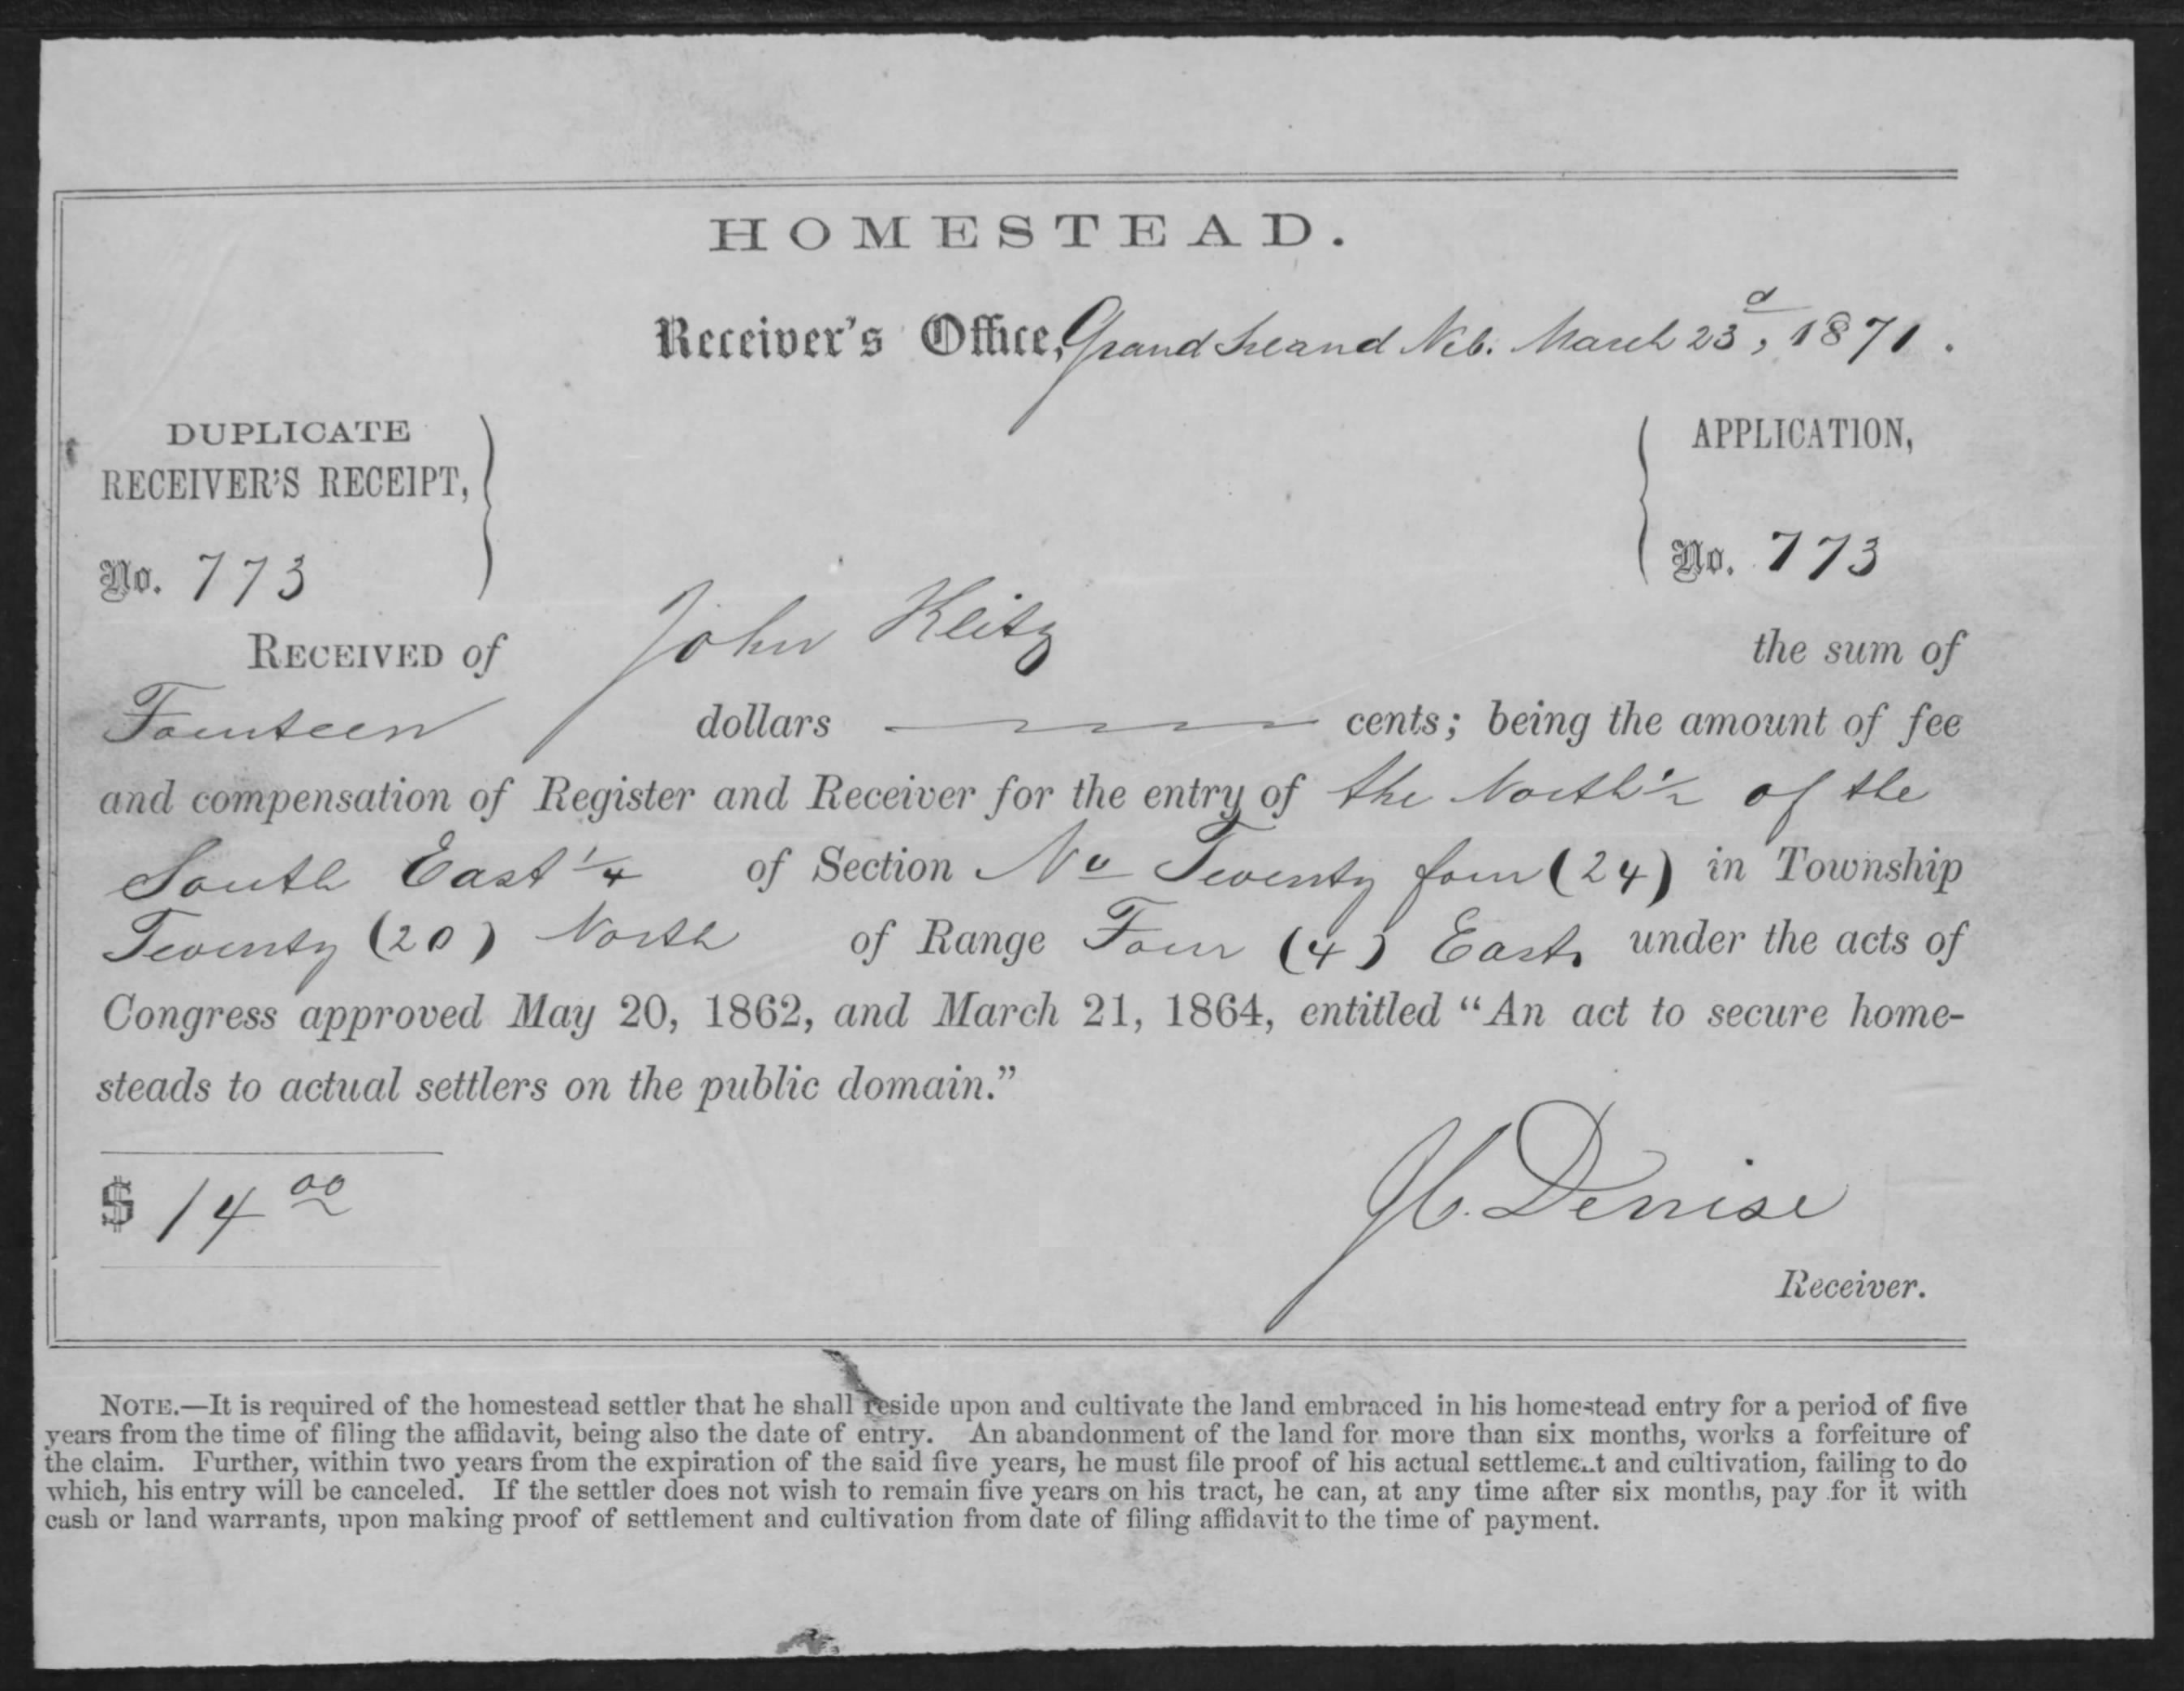 HOMESTEAD.
Receiver's Office, Grand Island Neb. March 23d, 1871.
DUPLICATE
RECEIVER'S RECEIPT,
No. 773
APPLICATION,
No. 773
RECEIVED of John Keitz the sum of
Fourteen dollars ——— cents; being the amount of fee
and compensation of Register and Receiver for the entry of the North ½ of the
South East ¼ of Section No Twenty four (24) in Township
Twenty (20) North of Range Four (4) East, under the acts of
Congress approved May 20, 1862, and March 21, 1864, entitled “An act to secure home-
steads to actual settlers on the public domain.”
$ 14 00
J. C. Denise
Receiver.
NOTE.—It is required of the homestead settler that he shall reside upon and cultivate the land embraced in his homestead entry for a period of five
years from the time of filing the affidavit, being also the date of entry. An abandonment of the land for more than six months, works a forfeiture of
the claim. Further, within two years from the expiration of the said five years, he must file proof of his actual settlement and cultivation, failing to do
which, his entry will be canceled. If the settler does not wish to remain five years on his tract, he can, at any time after six months, pay for it with
cash or land warrants, upon making proof of settlement and cultivation from date of filing affidavit to the time of payment.